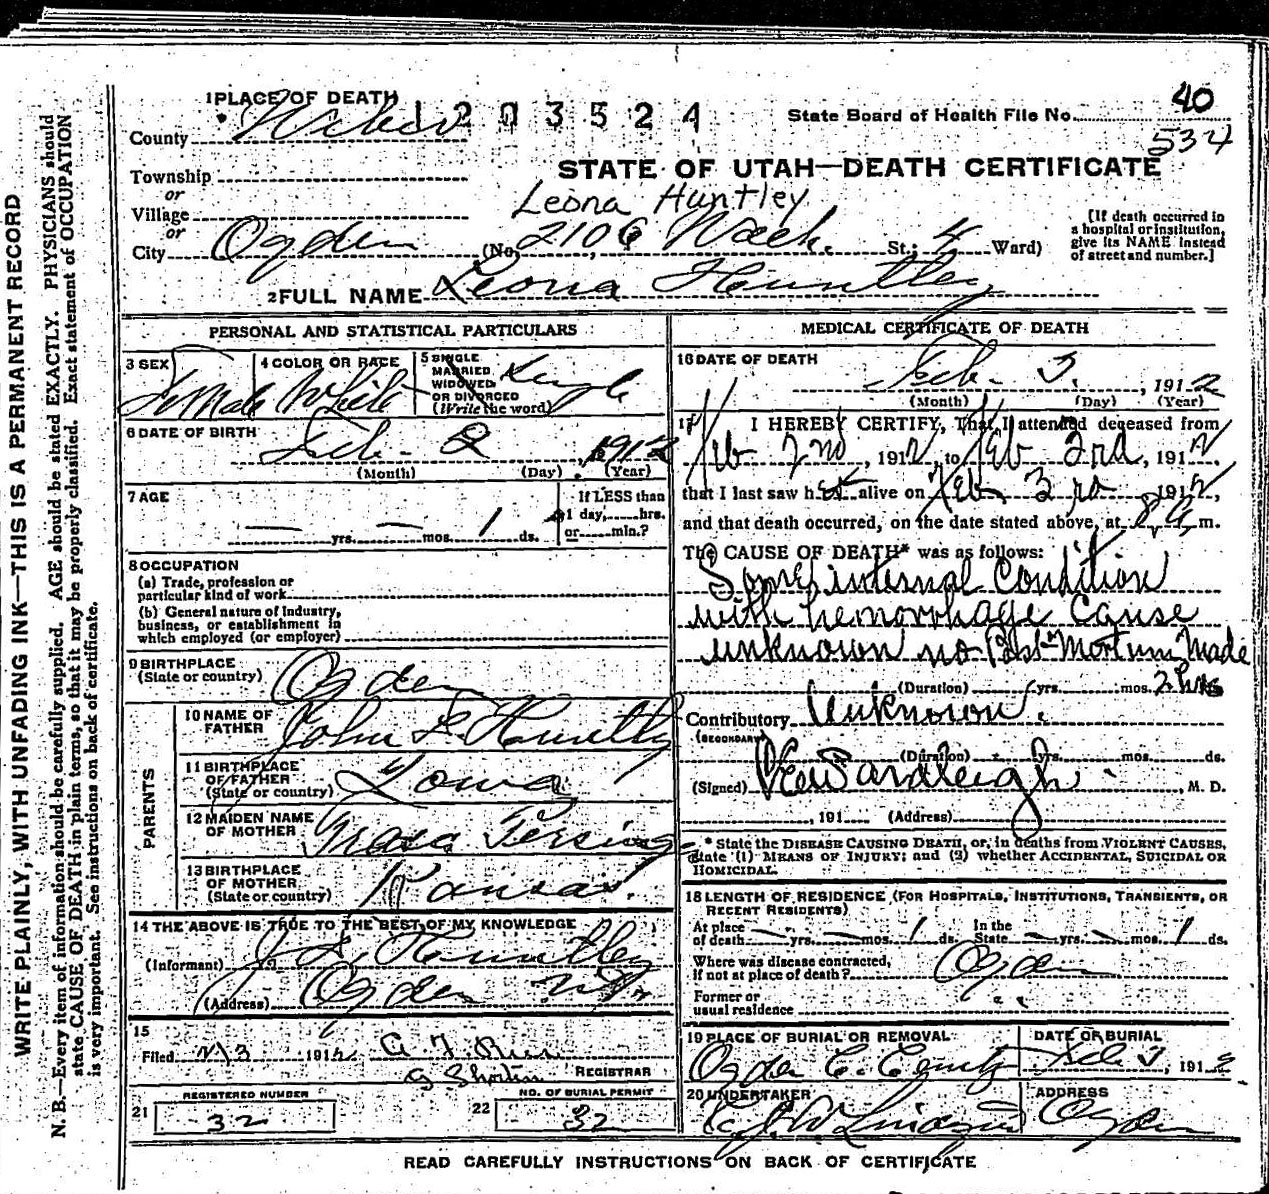 WRITE PLAINLY, WITH UNFADING INK—THIS IS A PERMANENT RECORD
N. B.—Every item of information should be carefully supplied. AGE should be stated EXACTLY. PHYSICIANS should
state CAUSE OF DEATH in plain terms, so that it may be properly classified. Exact statement of OCCUPATION
is very important. See instructions on back of certificate.
1 PLACE OF DEATH
203524
State Board of Health File No. 40
534
County Weber
STATE OF UTAH—DEATH CERTIFICATE
Township
or
Village
Leona Huntley
or
City Ogden (No. 2106 Wash. St.; 4 Ward)
[If death occurred in
a hospital or institution,
give its NAME instead
of street and number.]
2 FULL NAME Leona Huntley
PERSONAL AND STATISTICAL PARTICULARS
3 SEX Female
4 COLOR OR RACE White
5 SINGLE
MARRIED
WIDOWED
OR DIVORCED
(Write the word)
Single
6 DATE OF BIRTH
Feb. 2, 1912
(Month) (Day) (Year)
7 AGE
— yrs. — mos. 1 ds.
If LESS than
1 day, hrs.
or min.?
8 OCCUPATION
(a) Trade, profession or
particular kind of work
(b) General nature of industry,
business, or establishment in
which employed (or employer)
9 BIRTHPLACE
(State or country) Ogden
PARENTS
10 NAME OF
FATHER John L. Huntley
11 BIRTHPLACE
OF FATHER
(State or country) Iowa
12 MAIDEN NAME
OF MOTHER Persing
13 BIRTHPLACE
OF MOTHER
(State or country) Kansas.
14 THE ABOVE IS TRUE TO THE BEST OF MY KNOWLEDGE
(Informant) J. L. Huntley
(Address) Ogden Ut.
15
Filed 2/3 1912
REGISTRAR
REGISTERED NUMBER
21 32
NO. OF BURIAL PERMIT
22 32
MEDICAL CERTIFICATE OF DEATH
16 DATE OF DEATH
Feb. 3, 1912
(Month) (Day) (Year)
17 I HEREBY CERTIFY, That I attended deceased from
Feb 2nd, 1912, to Feb 3rd, 1912,
that I last saw her alive on Feb 3rd 1912,
and that death occurred, on the date stated above, at 8 a m.
The CAUSE OF DEATH* was as follows:
Some internal Condition
with hemorrhage Cause
unknown no Post-Mortum Made
(Duration) yrs. mos. 2 hrs
Contributory Unknown.
(SECONDARY)
(Duration) yrs. mos. ds.
(Signed) , M. D.
, 191 (Address)
* State the DISEASE CAUSING DEATH, or, in deaths from VIOLENT CAUSES,
state (1) MEANS OF INJURY; and (2) whether ACCIDENTAL, SUICIDAL OR
HOMICIDAL.
18 LENGTH OF RESIDENCE (FOR HOSPITALS, INSTITUTIONS, TRANSIENTS, OR
RECENT RESIDENTS)
At place
of death — yrs. — mos. 1 ds.
In the
State — yrs. — mos. 1 ds.
Where was disease contracted,
if not at place of death? Ogden
Former or
usual residence " "
19 PLACE OF BURIAL OR REMOVAL
Ogden C. Cemty
DATE OF BURIAL
Feb 3, 1912
20 UNDERTAKER
Lindquist
ADDRESS
Ogden
READ CAREFULLY INSTRUCTIONS ON BACK OF CERTIFICATE